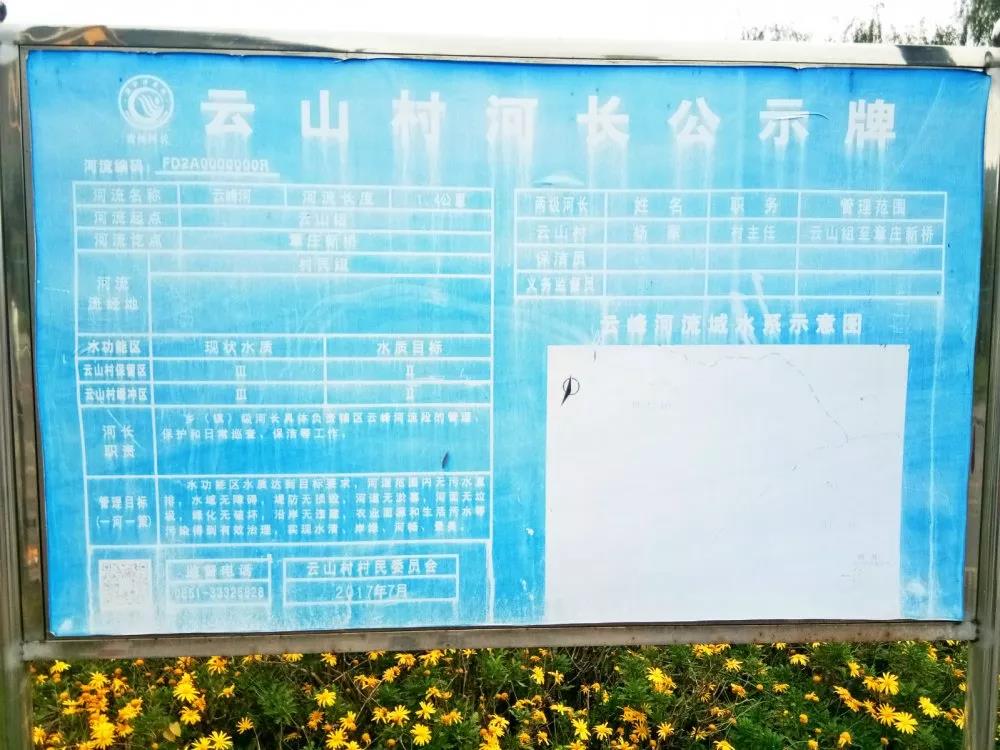 云山村河长公示牌
河流编码：FD2A0000000R
河流名称 云峰河 河流长度 1.4公里
河流起点 云山组
河流讫点 章庄新桥
河流流经地 村民组
水功能区 现状水质 水质目标
云山村保留区 Ⅲ Ⅱ
云山村缓冲区 Ⅲ Ⅱ
河长职责
乡（镇）级河长具体负责辖区云峰河流段的管理、
保护和日常巡查、保洁等工作。
管理目标
(一河一策)
水功能区水质达到目标要求，河道范围内无污水直
排，水域无障碍，堤防无损毁，河道无淤塞，河面无垃
圾，绿化无破坏，沿岸无违建，农业面源和生活污水等
污染得到有效治理，实现水清、岸绿、河畅、景美。
监督电话
0851-33325828
云山村村民委员会
2017年7月
两级河长 姓名 职务 管理范围
云山村 村主任 云山组至章庄新桥
保洁员
义务监督员
云峰河流域水系示意图